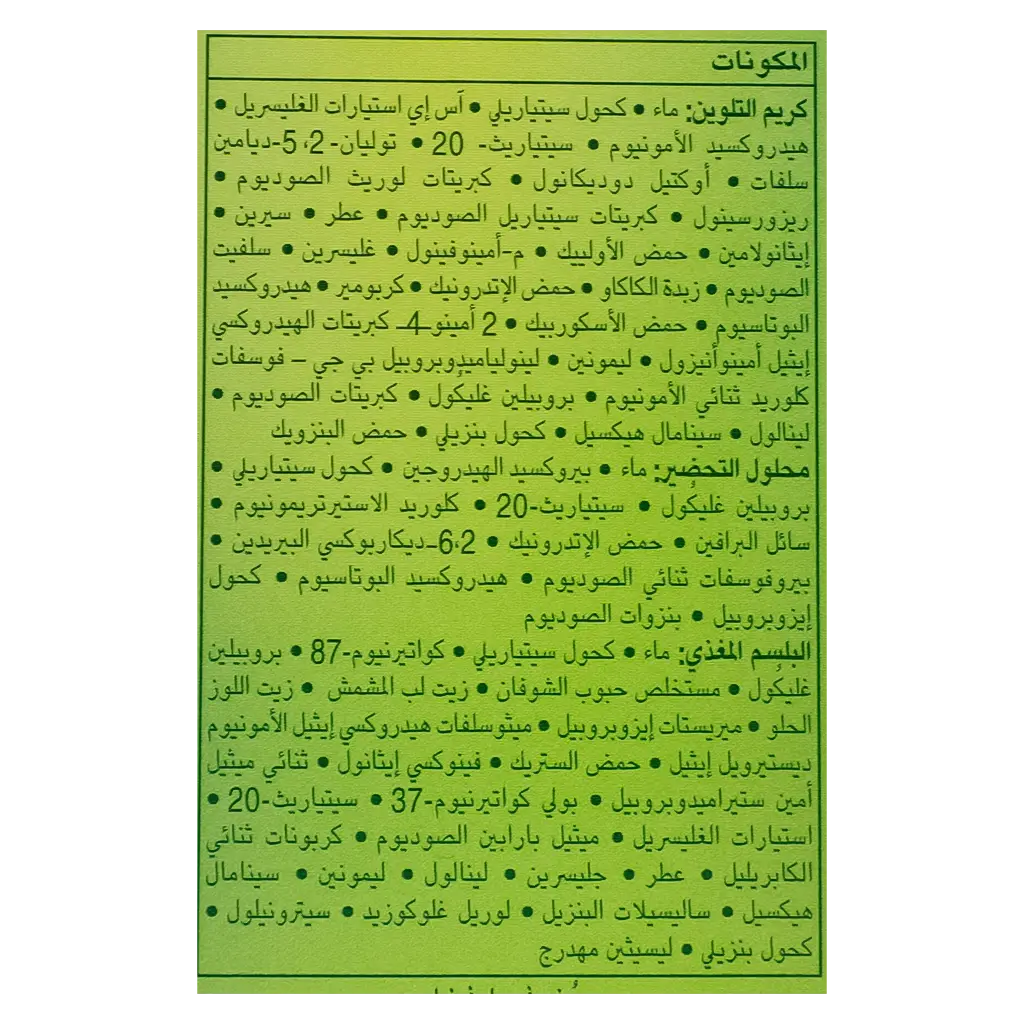 المكونات
كريم التلوين: ماء • كحول سيتياريلي • آس إي استيارات الغليسريل •
هيدروكسيد الأمونيوم • سيتياريث- 20 • توليان- 2، 5-ديامين
سلفات • أوكتيل دوديكانول • كبريتات لوريث الصوديوم •
ريزورسينول • كبريتات سيتياريل الصوديوم • عطر • سيرين •
إيثانولامين • حمض الأولييك • م-أمينوفينول • غليسرين • سلفيت
الصوديوم • زبدة الكاكاو • حمض الإتدرونيك • كربومير • هيدروكسيد
البوتاسيوم • حمض الأسكوربيك • 2 أمينو-4- كبريتات الهيدروكسي
إيثيل أمينوأنيزول • ليمونين • لينولياميدوبروبيل بي جي – فوسفات
كلوريد ثنائي الأمونيوم • بروبيلين غليكول • كبريتات الصوديوم •
لينالول • سينامال هيكسيل • كحول بنزيلي • حمض البنزويك
محلول التحضير: ماء • بيروكسيد الهيدروجين • كحول سيتياريلي •
بروبيلين غليكول • سيتياريث-20 • كلوريد الاستيرتريمونيوم •
سائل البرافين • حمض الإتدرونيك • 6،2-ديكاربوكسي البيريدين •
بيروفوسفات ثنائي الصوديوم • هيدروكسيد البوتاسيوم • كحول
إيزوبروبيل • بنزوات الصوديوم
البلسم المغذي: ماء • كحول سيتياريلي • كواتيرنيوم-87 • بروبيلين
غليكول • مستخلص حبوب الشوفان • زيت لب المشمش • زيت اللوز
الحلو • ميريستات إيزوبروبيل • ميثوسلفات هيدروكسي إيثيل الأمونيوم
ديستيرويل إيثيل • حمض الستريك • فينوكسي إيثانول • ثنائي ميثيل
أمين ستيراميدوبروبيل • بولي كواتيرنيوم-37 • سيتياريث-20 •
استيارات الغليسريل • ميثيل بارابين الصوديوم • كربونات ثنائي
الكابريليل • عطر • جليسرين • لينالول • ليمونين • سينامال
هيكسيل • ساليسيلات البنزيل • لوريل غلوكوزيد • سيترونيلول •
كحول بنزيلي • ليسيثين مهدرج